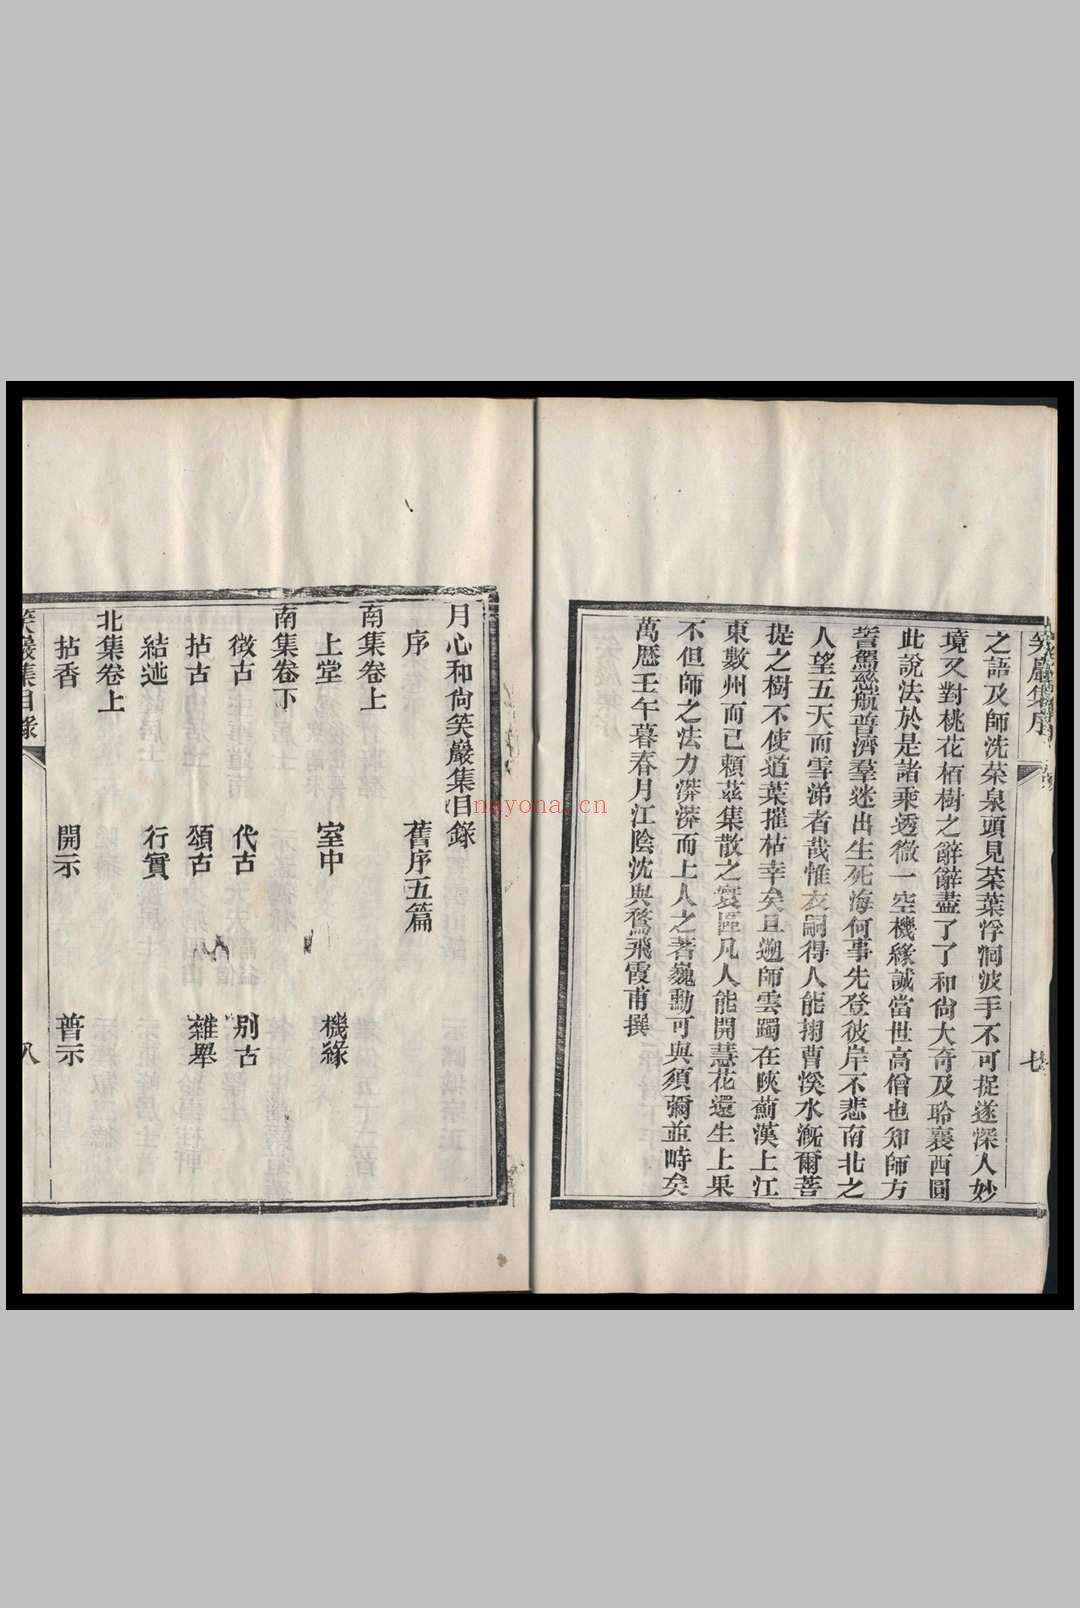 笑巖集序
七
之語及師洗茶泉頭見茶葉浮洄波手不可捉遂深人妙
境又對桃花栢樹之辭辭盡了了和尙大奇及聆襄西圓
此說法於是諸乘透徹一空機緣誠當世高僧也知師方
誓駕慈航普濟羣迷出生死海何事先登彼岸不悲南北之
人望五天而雪涕者哉惟衣嗣得人能搠曹溪水漑爾菩
提之樹不使道葉摧枯幸矣且遡師雲躅在陝薊漢上江
東數州而已賴茲集散之寰區凡人能開慧花還生上果
不但師之法力漭漭而上人之著巍勳可與須彌並時矣
萬歷壬午暮春月江陰沈與鶩飛霞甫撰
月心和尙笑巖集目錄
序 舊序五篇
南集卷上
上堂 室中 機緣
南集卷下
徵古 代古 別古
拈古 頌古 雜舉
結逃 行實
北集卷上
拈香 開示 普示
笑巖集目錄
八
nayona.cn